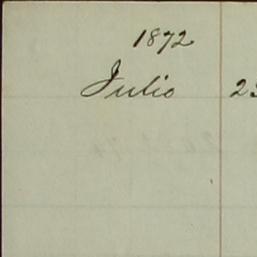 1872
Julio